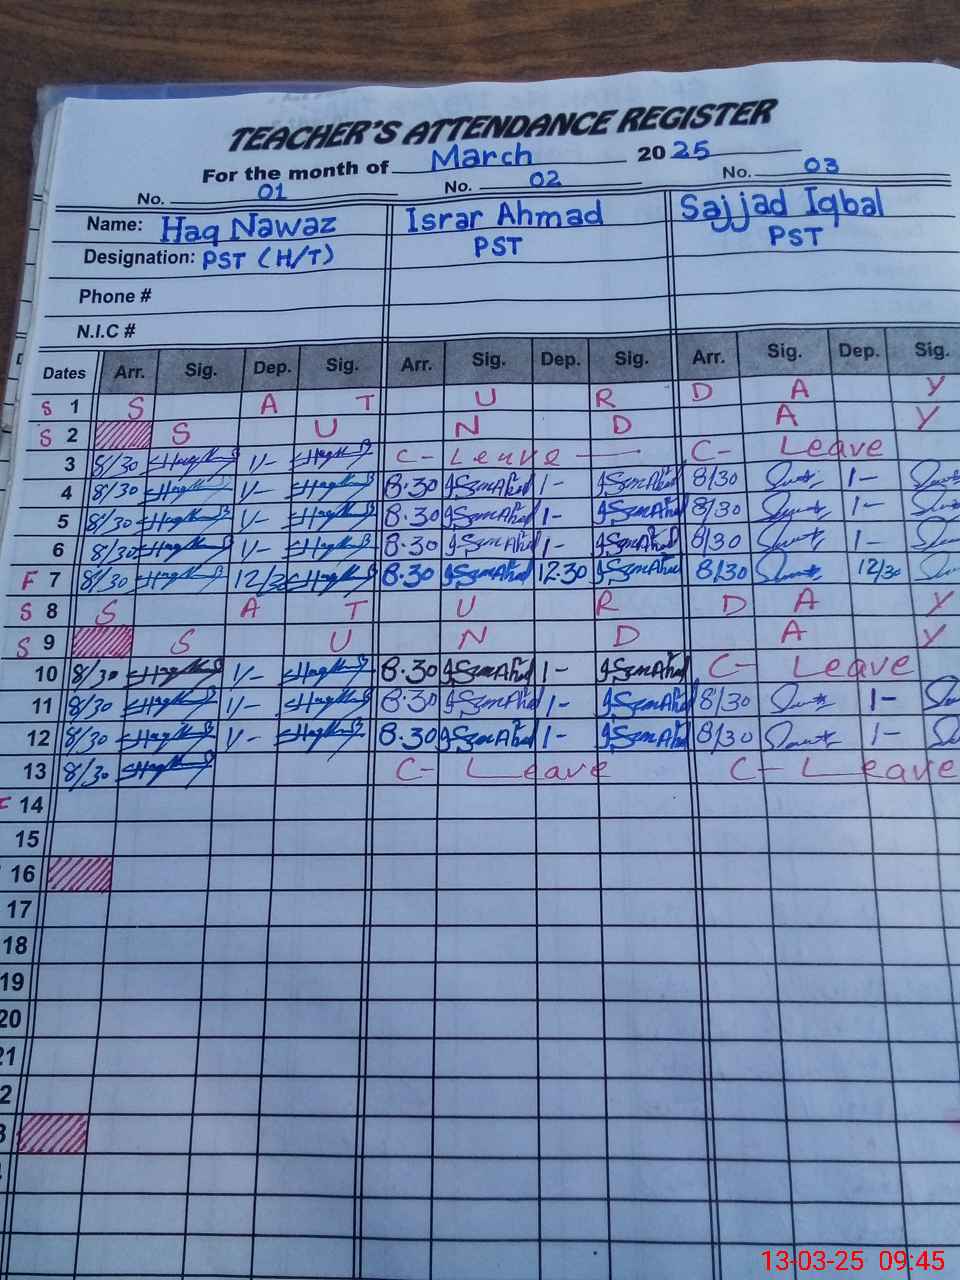 TEACHER'S ATTENDANCE REGISTER
For the month of March 2025
No. 01 No. 02 No. 03
Name: Haq Nawaz Israr Ahmad Sajjad Iqbal
Designation: PST (H/T) PST PST
Phone #
N.I.C #
Dates Arr. Sig. Dep. Sig. Arr. Sig. Dep. Sig. Arr. Sig. Dep. Sig.
S 1 S A T U R D A Y
S 2 S U N D A Y
3 8/30 1/- C- Leave C- Leave
4 8/30 1/- 8.30 1- 8/30 1-
5 8/30 1/- 8.30 1- 8/30 1-
6 8/30 1/- 8.30 1- 8/30 1-
F 7 8/30 12/30 8.30 12.30 8/30 12/30
S 8 S A T U R D A Y
S 9 S U N D A Y
10 8/30 1/- 8.30 1- C- Leave
11 8/30 1/- 8.30 1- 8/30 1-
12 8/30 1/- 8.30 1- 8/30 1-
13 8/30 C- Leave C- Leave
14
15
16
17
18
19
20
21
2
3
13-03-25 09:45